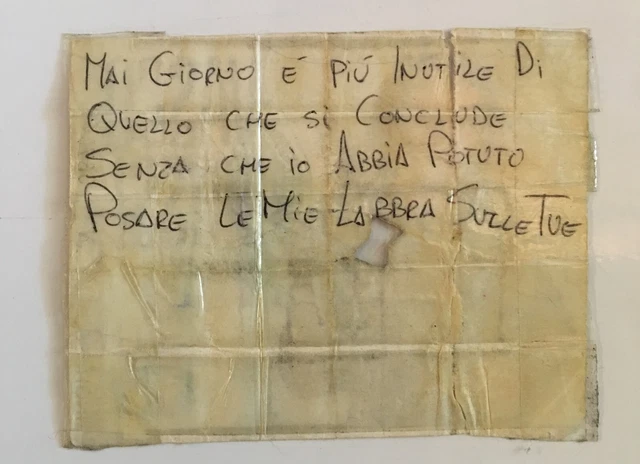 MAI GIORNO É PIÚ INUTILE DI
QUELLO CHE SI CONCLUDE
SENZA CHE IO ABBIA POTUTO
POSARE LE MIE LABBRA SULLE TUE